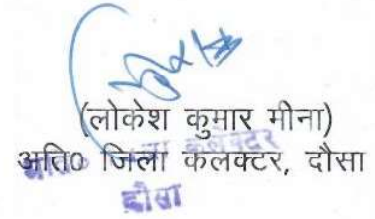 (लोकेश कुमार मीना)
अति० जिला कलक्टर, दौसा
अति० जिला कलेक्टर
दौसा